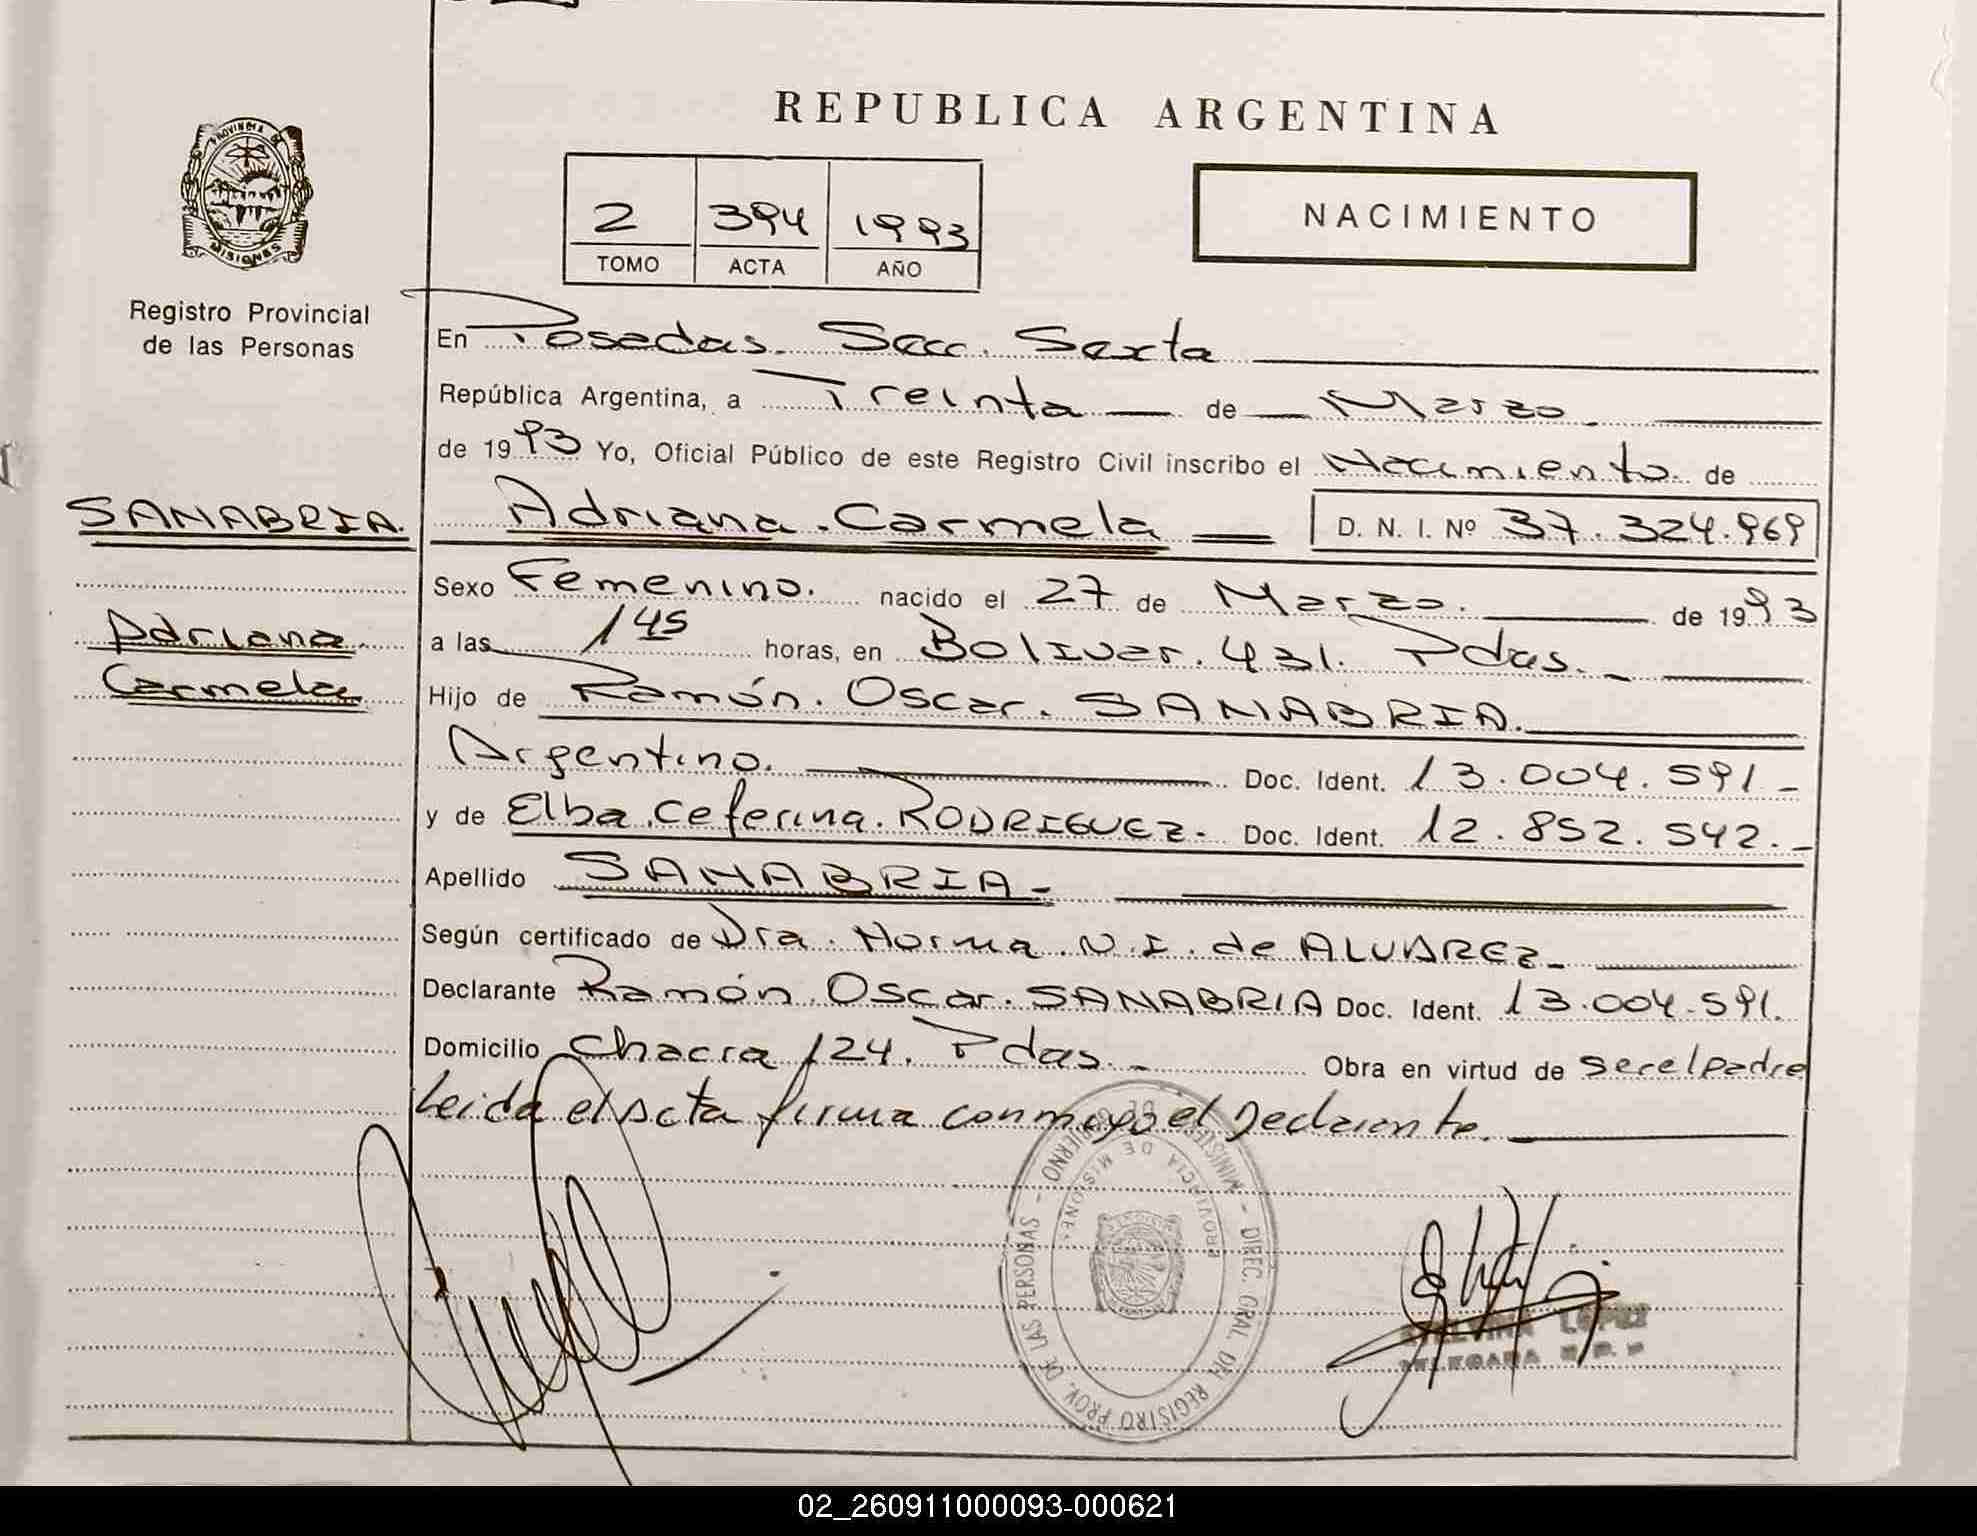 REPUBLICA ARGENTINA
PROVINCIA DE
MISIONES
Registro Provincial
de las Personas
2 394 1993
TOMO ACTA AÑO
NACIMIENTO
En Posadas. Secc. Sexta
República Argentina, a Treinta de Marzo
de 1993 Yo, Oficial Público de este Registro Civil inscribo el Nacimiento de
SANABRIA.
Adriana Carmela D. N. I. Nº 37.324.969
Sexo Femenino. nacido el 27 de Marzo. de 1993
Adriana
Carmela
a las 1 45 horas, en Bolivar. 431. Pdas.
Hijo de Ramón. Oscar. SANABRIA.
Argentino. Doc. Ident. 13.004.591-
y de Elba Ceferina. RODRIGUEZ- Doc. Ident. 12.852.542.-
Apellido SANABRIA-
Según certificado de Dra. Norma. N. I. de ALVAREZ-
Declarante Ramón Oscar. SANABRIA Doc. Ident. 13.004.591.
Domicilio Chacra 124. Pdas.- Obra en virtud de ser el padre
Leida el acta firma conmigo el Declarante.
MINISTERIO DE GOBIERNO - DIREC. GRAL. DEL REGISTRO PROV. DE LAS PERSONAS -
PROVINCIA DE MISIONES
LOPEZ
DELEGADA
02_260911000093-000621